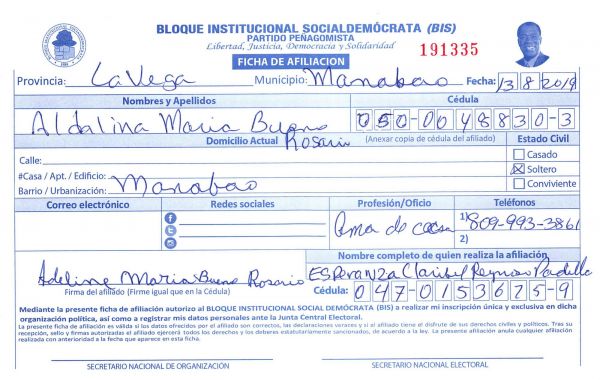 BLOQUE INSTITUCIONAL SOCIALDEMÓCRATA (BIS)
PARTIDO PEÑAGOMISTA
Libertad, Justicia, Democracia y Solidaridad
191335
FICHA DE AFILIACION
Provincia: La Vega Municipio: Manabao Fecha: 13/8/2019
Nombres y Apellidos Cédula
Aldalina Maria Bueno Rosario 050-0048830-3
Domicilio Actual (Anexar copia de cédula del afiliado) Estado Civil
Calle: Casado
#Casa / Apt. / Edificio: Soltero
Barrio / Urbanización: Manabao Conviviente
Correo electrónico Redes sociales Profesión/Oficio Teléfonos
Ama de casa 1) 809-993-3861
2)
Nombre completo de quien realiza la afiliación
Adeline Maria Bueno Rosario Esperanza Claribel Reynoso Padilla
Firma del afiliado (Firme igual que en la Cédula) Cédula: 047-0153675-9
Mediante la presente ficha de afiliación autorizo al BLOQUE INSTITUCIONAL SOCIAL DEMÓCRATA (BIS) a realizar mi inscripción única y exclusiva en dicha
organización política, así como a registrar mis datos personales ante la Junta Central Electoral.
La presente ficha de afiliación es válida si los datos ofrecidos por el afiliado son correctos, las declaraciones veraces y si al afiliado tiene el disfrute de sus derechos civiles y políticos. Tras su
recepción, sello y firmas autorizadas el afiliado ejercerá todos los derechos y los deberes estatutariamente sancionados, de acuerdo a la ley. La presente afiliación anula cualquier afiliación
realizada con anterioridad a la fecha que aparece en esta ficha.
SECRETARIO NACIONAL DE ORGANIZACIÓN SECRETARIO NACIONAL ELECTORAL